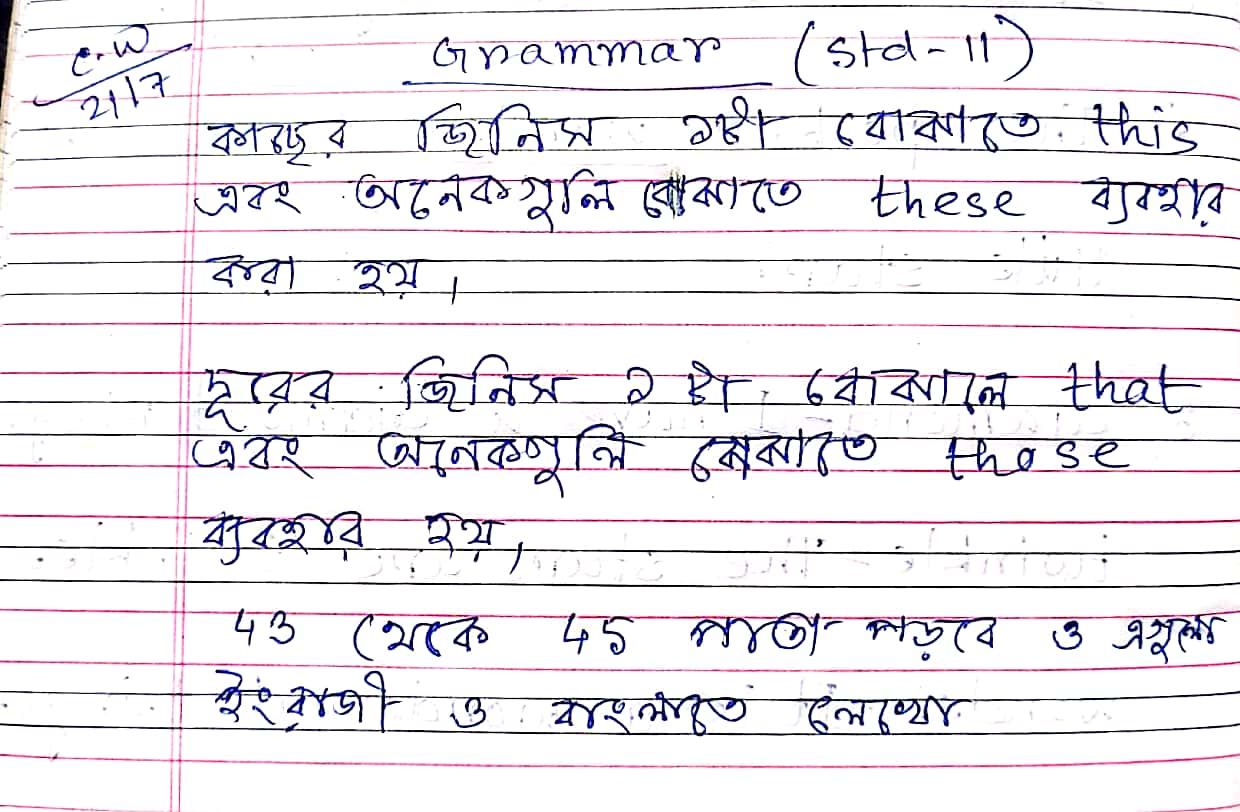 C.W
21/7
Grammar (Std-II)
কাছের জিনিস ১টা বোঝাতে this
এবং অনেকগুলি বোঝাতে these ব্যবহার
করা হয়।
দূরের জিনিস ১ টা বোঝালে that
এবং অনেকগুলি বোঝাতে those
ব্যবহার হয়,
43 থেকে 45 পাতা পড়বে ও এগুলো
ইংরাজী ও বাংলাতে লেখো